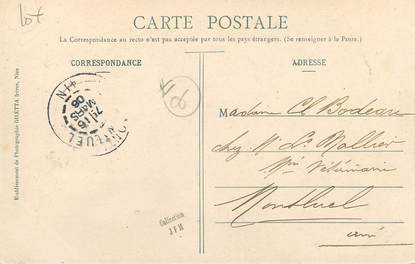 Lot
CARTE POSTALE
La Correspondance au recto n'est pas acceptée par tous les pays étrangers. (Se renseigner à la Poste.)
CORRESPONDANCE
ADRESSE
Etablissement de Photographie GILETTA frères, Nice
MARS
06
Madame Cl Bodeau
chez Mr
Vétérinaire
Montluel
Ain
Collection
J F M